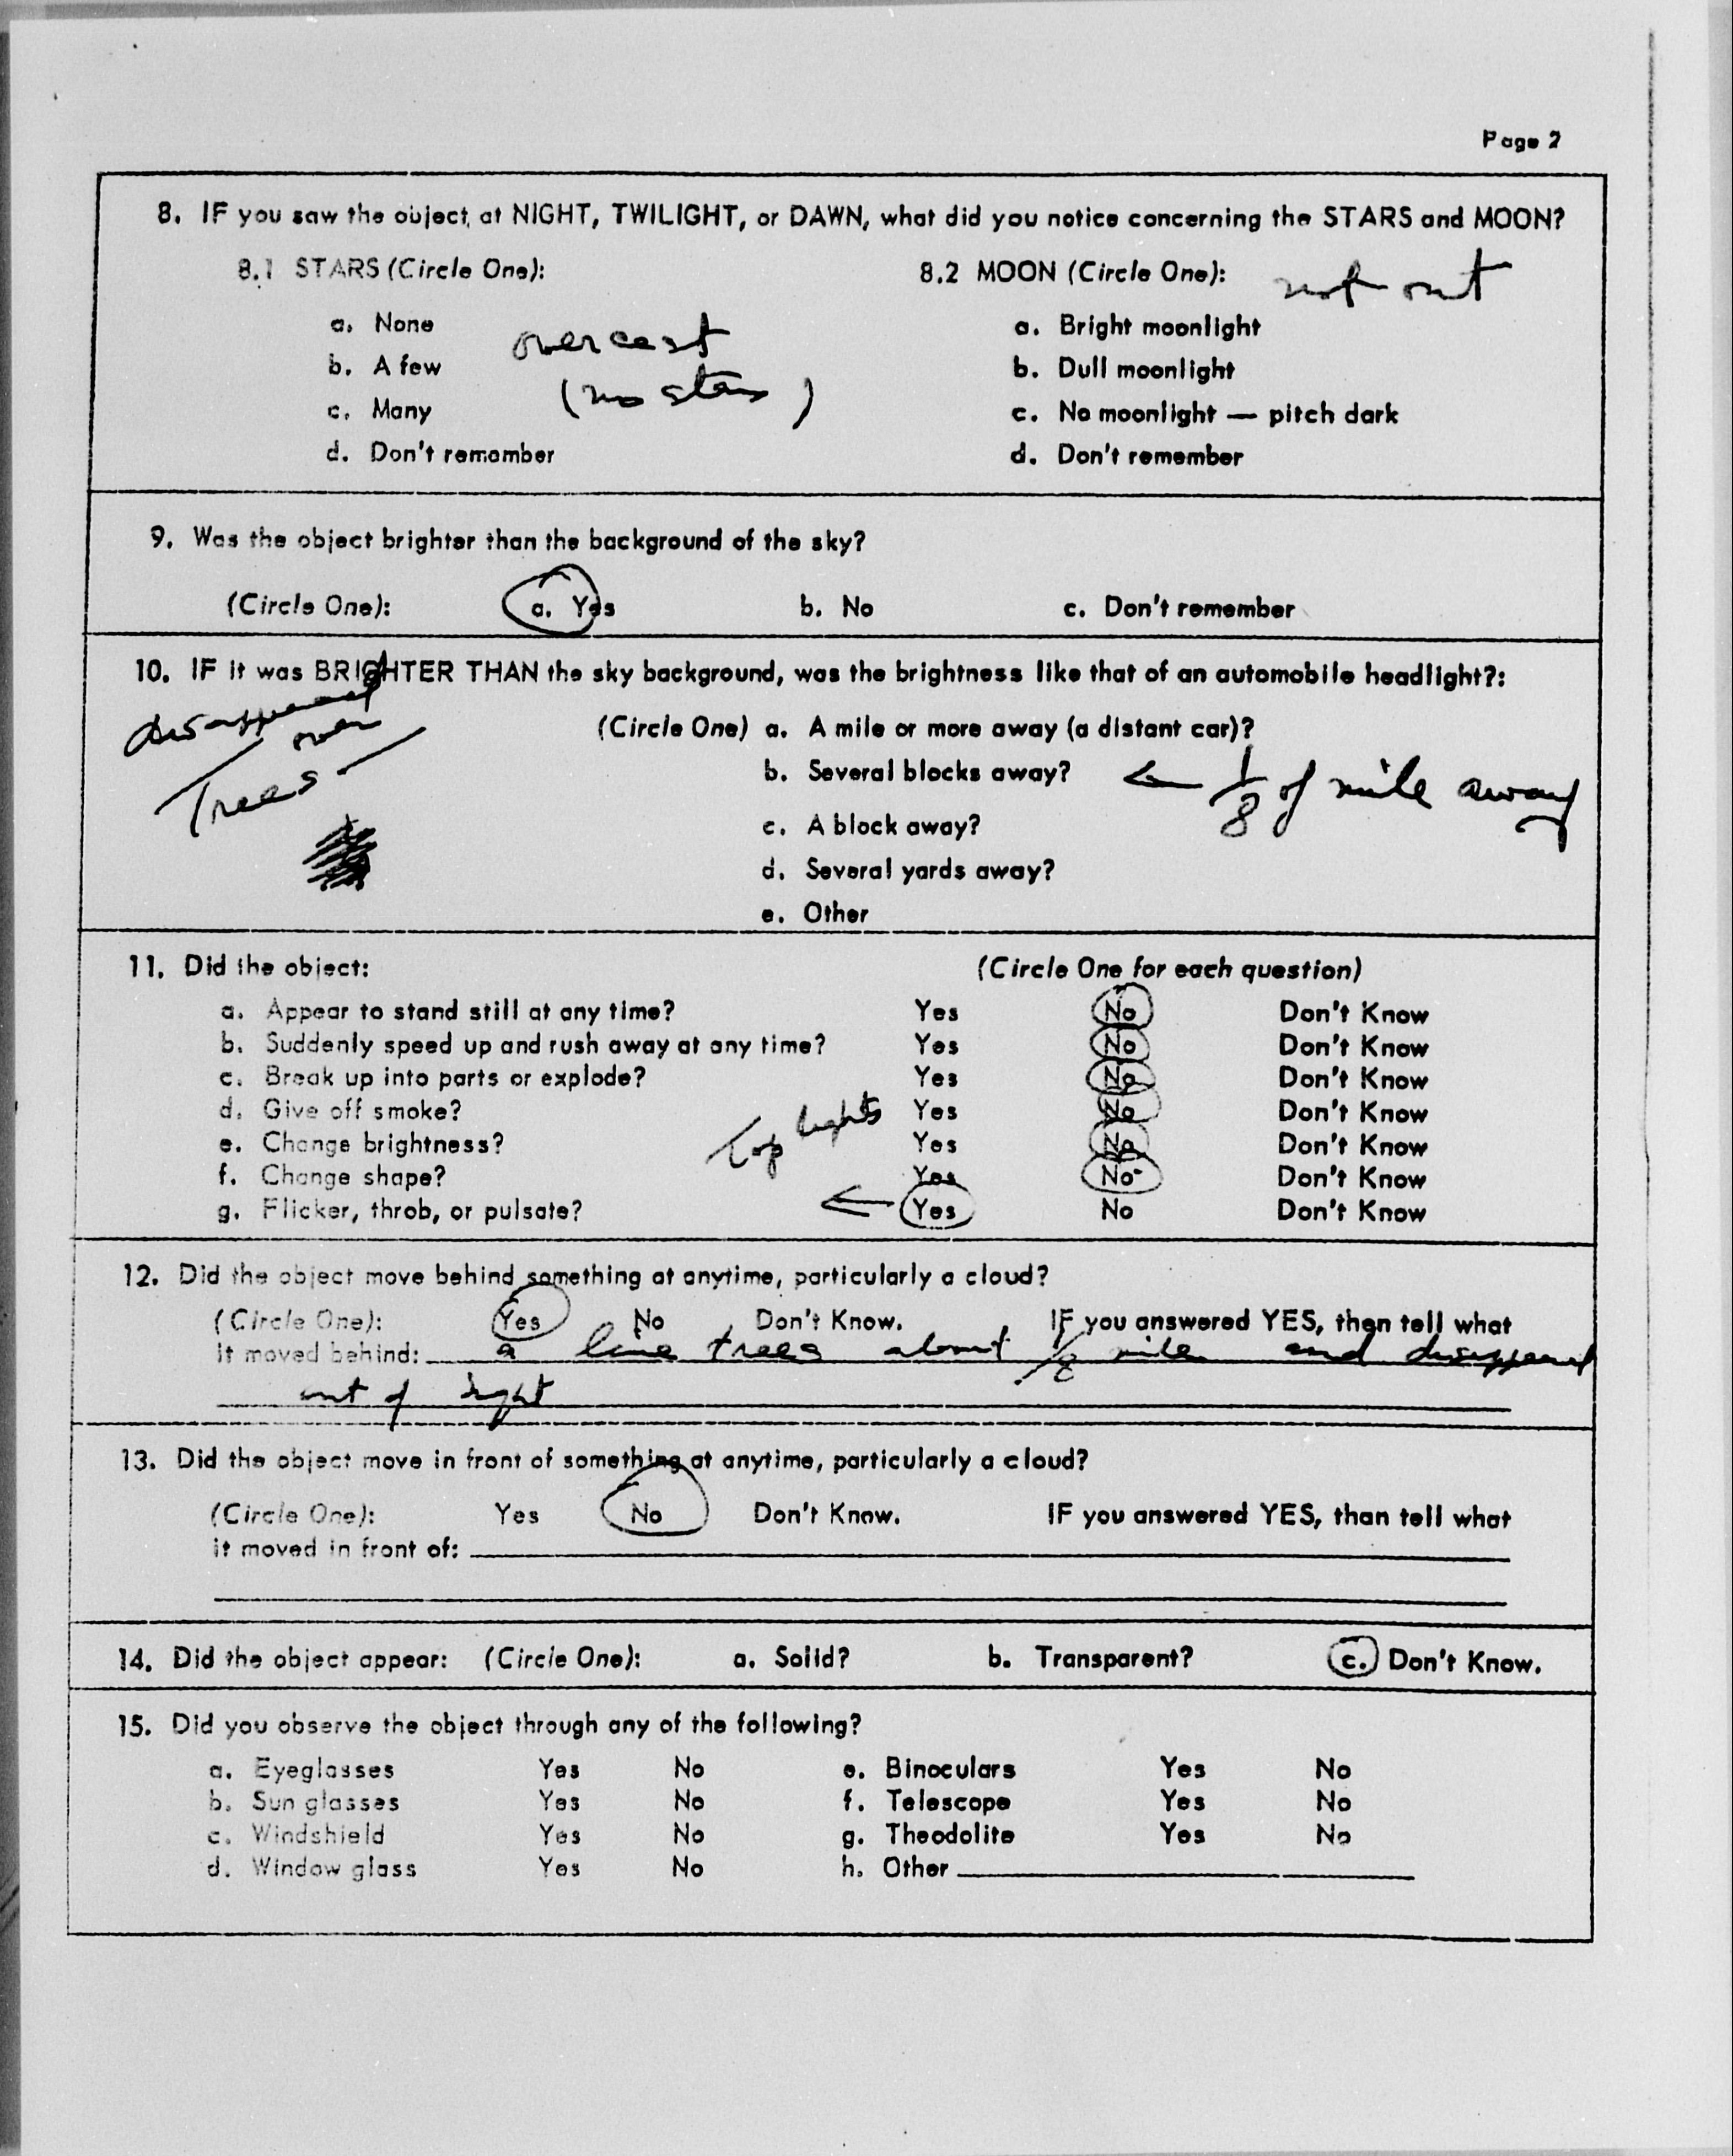 Page 2
8. IF you saw the object, at NIGHT, TWILIGHT, or DAWN, what did you notice concerning the STARS and MOON?
8.1 STARS (Circle One):
a. None
b. A few
c. Many
d. Don't remember
overcast
(no stars)
8.2 MOON (Circle One): not out
a. Bright moonlight
b. Dull moonlight
c. No moonlight — pitch dark
d. Don't remember
9. Was the object brighter than the background of the sky?
(Circle One): a. Yes b. No c. Don't remember
10. IF it was BRIGHTER THAN the sky background, was the brightness like that of an automobile headlight?:
disappeared
over
Trees
(Circle One) a. A mile or more away (a distant car)?
b. Several blocks away? ← 1/8 of mile away
c. A block away?
d. Several yards away?
e. Other
11. Did the object: (Circle One for each question)
a. Appear to stand still at any time? Yes No Don't Know
b. Suddenly speed up and rush away at any time? Yes No Don't Know
c. Break up into parts or explode? Yes No Don't Know
d. Give off smoke? Yes No Don't Know
e. Change brightness? Yes No Don't Know
f. Change shape? Yes No Don't Know
g. Flicker, throb, or pulsate? ← Yes No Don't Know
Top lights
12. Did the object move behind something at anytime, particularly a cloud?
(Circle One): Yes No Don't Know. IF you answered YES, then tell what
it moved behind: a line trees about 1/8 mile and disappeared
out of sight
13. Did the object move in front of something at anytime, particularly a cloud?
(Circle One): Yes No Don't Know. IF you answered YES, than tell what
it moved in front of:
14. Did the object appear: (Circle One): a. Solid? b. Transparent? c. Don't Know.
15. Did you observe the object through any of the following?
a. Eyeglasses Yes No e. Binoculars Yes No
b. Sun glasses Yes No f. Telescope Yes No
c. Windshield Yes No g. Theodolite Yes No
d. Window glass Yes No h. Other